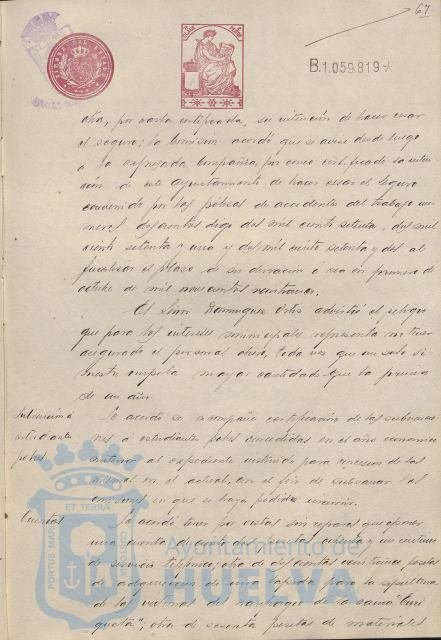 67
B.1.059.819*
ñía, por carta certificada, su intención de hacer cesar
el seguro; la Comisión acordó que se avise desde luego
a la expresada Compañía, por correo certificado la inten-
ción de este Ayuntamiento de hacer cesar el seguro
convenido por las pólizas de accidentes del trabajo nú-
meros digo dos mil ciento setenta, dos mil
ciento setenta y una y dos mil ciento setenta y dos al
finalizar el plazo de su duración o sea en primero de
octubre de mil novecientos veintinueve.
El Señor Dominguez Ortiz advirtió el peligro
que para los intereses municipales representa no tener
asegurado el personal obrero, toda vez que un solo si-
niestro importa mayor cantidad que la prima
de un año.
Subvención a
estudiantes
pobres.
Se acordó se acompañe certificación de las subvencio-
nes a estudiantes pobres concedidas en el año económico
anterior al expediente instruido para concesion de las
mismas en el actual, con el fin de subsanar las
omisiones en que se haya podido incurrir.
Cuentas
Se acordó tener por vistas sin reparos que oponer
una cuenta de ciento dos pesetas ochenta y un céntimos
de servicio telefónico; otra de doscientas cincuenta pesetas
de adquisicion de una lápida para la sepultura
de las victimas del naufragio de la canoa "Enri-
queta"; otra de sesenta pesetas de materiales
Ayuntamiento de
HUELVA
PORTUS MARIS
ET TERRÆ
CUSTODIA